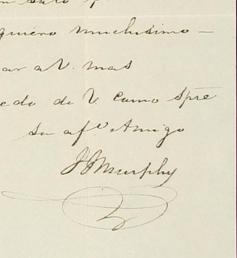 quiero muchisimo —
ar a V. mas
edo de V como Spre
Su afo Amigo
Murphy